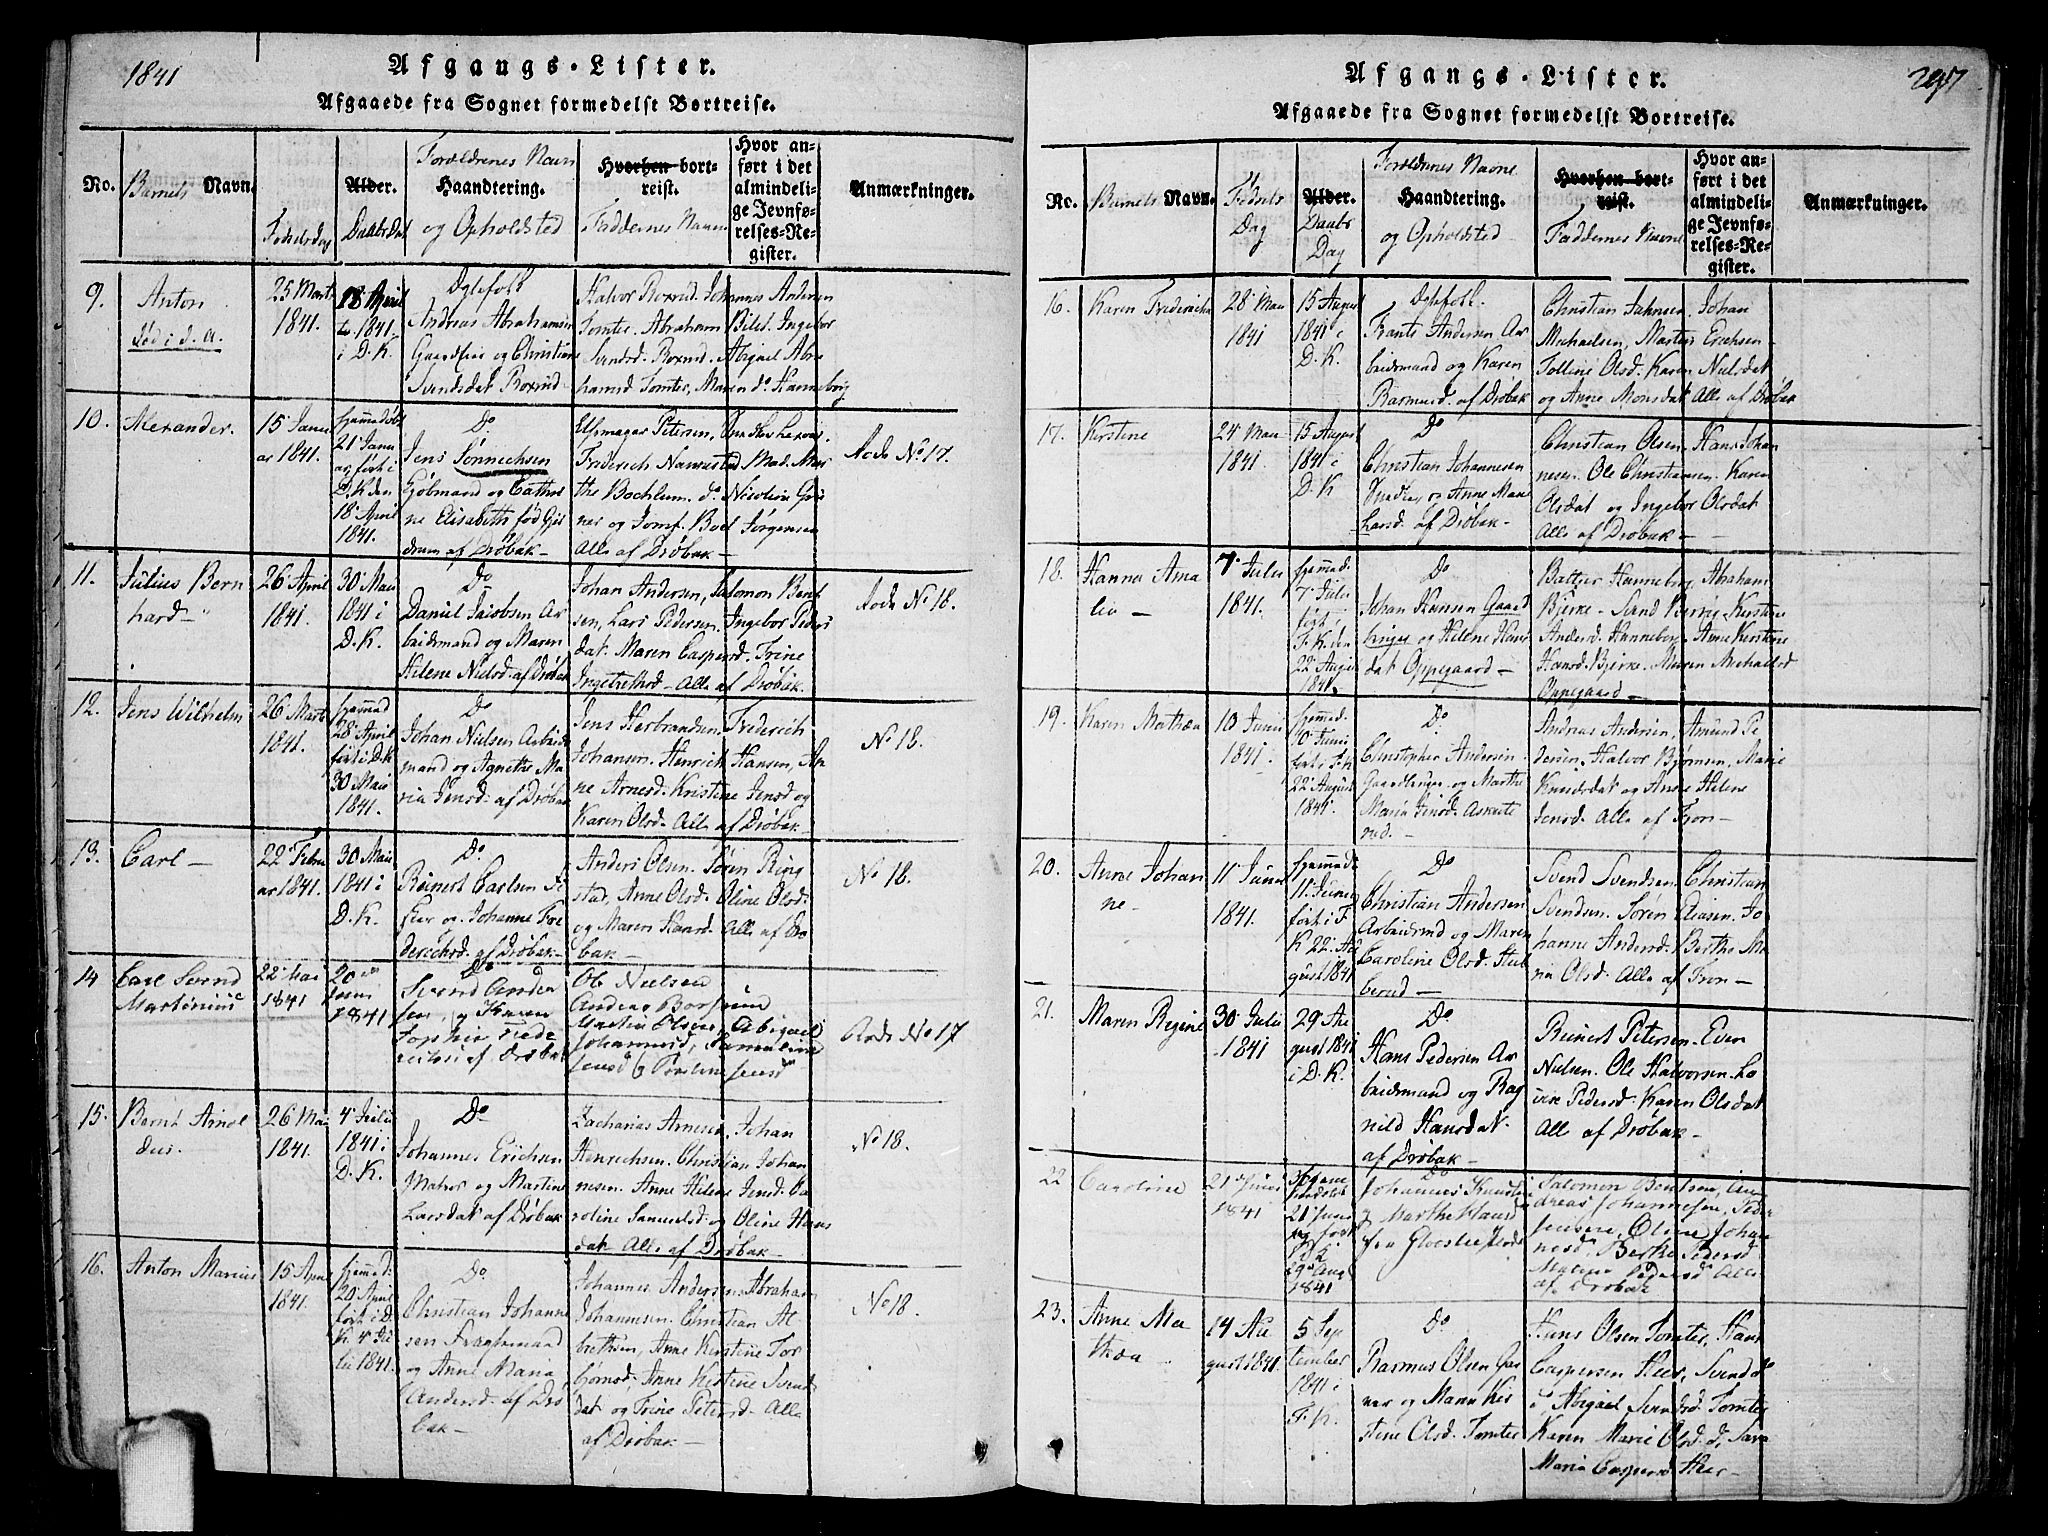 1841
Afgangs-Lister.
Afgaaede fra Sognet formedelst Bortreise.
No.
Barnets Navn.
Fødselsdag
Alder.
Daabsdat
Forældrenes Navn
Haandtering.
og Opholdsted
Hvorhen bortreist.
Faddernes Navne
Hvor anført i det almindelige Jevnførelses-Register.
Anmærkninger.
9.
Anton
død i d. A.
25 Mart
1841.
18 April
1841.
i D.K.
Ægtefolk
Andreas Abrahamsen
og Christiane
Svendsdat Roxrud
Halvor Roxrud. Johannes Andersen
Tomter. Abraham Ingebor
Svendsd. Roxrud. Abigael Abra
hamsd Tomter, Maren do Hanneborg
10.
Alexander.
15 Janu
ar 1841.
hjemmedøbt
21 Janu
ar ført i
D.K. den
18 April
1841.
Do
Jens Sønnichsen
Kjøbmand og Cathri
ne Elisabeth fød
af Drøbak
Petersen,
Friderich Mad. Mar
the Bochlum. do Nicoline
ner og Jomf. Boel Jørgensen
Alle af Drøbak
Aode No 17.
11.
Julius Bern
hard
26 April
1841.
30 Mai
1841 i
D.K.
Do
Daniel Jacobsen Ar
beidsmand og Maren
Helene Nielsd. af Drøbak
Johan Andersen, Salomon Bent
sen, Lars Pedersen. Ingebor Peders
dat. Maren Caspersd. Trine
Ingebrethsd. Alle af Drøbak.
Aode No 18.
12.
Jens Wilhelm
26 Mart
1841.
hjemmed
28 April
ført i D.K
30 Mai
1841.
Do
Johan Nielsen Arbeids
mand og Agnethe Ma
ria Jensd. af Drøbak
Jens Herbrandsen, Frederich
Johansen. Henrich Hansen, An
ne Arnesd. Kristine Jensd og
Karen Olsd. Alle af Drøbak
No 18.
13.
Carl
22 Febru
ar 1841.
30 Mai
1841 i
D.K.
Do.
Reinert Carlsen Fi
sker og Johanne Fre
derechsd. af Drøbak
Anders Olsen. Søren Ring
stad, Anne Olsd. Oline Olsd.
og Maren Hansd. Alle af Drø
bak
No 18.
14
Carl Svend
Martinius
22 Mai
1841
20de
Juni
1841
Do
Svend Ander
sen, og Karen
Sophia Frede
richsd af Drøbak
Ole Nielsen
Andreas
Martin Olsen, Abigael
Johannesd, Pernilline
Jensd & Jensd
Aode No 17
15.
Bernt Arnol
dus.
26 Mai
1841.
4 Julii
1841 i
D.K.
Do
Johannes Erichsen
Matros og Martine
Larsdat af Drøbak
Zacharias Arnesen, Johan
Henrichsen. Christian Johan
nesen. Anne Helene Jensd. Ca
roline Samuelsd. og Oline Hans
dat. Alle af Drøbak
No 18.
16.
Anton Marius
15 April
1841.
hjemmed.
20 April
ført i D.
K. 4 Ju
lii 1841.
Do.
Christian Johanne
sen Fragtemand
og Anne Maria
Andersd. af Drø
bak
Johannes Andersen Abraham
Johannesen. Christian Al
brethsen, Anne Kerstine Tor
biørnsd, Anne Kerstine Svends
dat og Trine Petersd. Alle
af Drøbak
No 18.
Afgangs-Lister.
297
Afgaaede fra Sognet formedelst Bortreise.
No.
Barnets Navn.
Fødsels
Dag
Alder.
Daabs
Dag
Forældrenes Navne
Haandtering.
og Opholdsted
Hvorhen bortreist.
Faddernes Navne
Hvor anført i det almindelige Jevnførelses-Register.
Anmærkninger.
16.
Karen Fredericha
28 Mai
1841
15 August
1841 i
D.K.
Ægtefolk.
Frants Andersen Ar
beidsmand og Karen
Rasmusd. af Drøbak
Christian Jahnsen. Johan
Michaelsen, Martin Erichsen
Olsd. Karen Nielsdat
og Anne Monsdat Alle af Drøbak
17.
Kerstine
24 Mai
1841.
15 August
1841 i
D.K
Do
Christian Johannesen
og Anne Mari
Larsd. af Drøbak
Christian Olsen. Hans Johan
nesen. Ole Christiansen. Karen
Olsdat og Ingebor Olsdat
Alle af Drøbak
18.
Hanna Ama
lia
7 Julii
1841.
hjemmed.
7 Julii
ført i
F.K. den
22 August
1841.
Do
Johan Hansen Gaard
bruger og Helene Hans
dat Oppegaard
Baltzer Hanneborg, Abraham
Bjerke. Svend Bjerke. Kerstine
Andersd. Hanneborg. Anne Kerstine
Hansd. Bjerke. Maren Michaelsd
Oppegaard
19.
Karen Mathea
10 Junii
1841.
hjemmed.
10 Junii
ført i F.K
22 August
1841.
Do.
Christopher Andersen
Gaardbruger og Marthe
Maria Jensd.
Andreas Andersen, Amund Pe
dersen, Halvor Bjørnsen, Marie
Knudsdat og Anne Helene
Jensd. Alle af Fron
20.
Anne Johan
ne
11 Junii
1841.
hjemmed.
11 Junii
ført i F.
K 22. Au
gust 1841
Do
Christian Andersen
Arbeidsmd og Maren
Caroline Olsd.
Svend Svendsen. Christian
Svendsen. Søren Eliasen. Jo
hanne Andersd. Berthe Ma
ria Olsd. Alle af Fron
21.
Maren Regine
30 Julii
1841
29 Au
gust 1841
i D.K.
Do
Hans Pedersen Ar
beidsmand og Rag
nild Hansdat
af Drøbak
Reinert Petersen. Even
Nielsen. Ole Halvorsen. Lo
vise Pedersd. Karen Olsdat
Alle af Drøbak
22
Caroline
21 Juni
1841
Hjemme
døbt
21 Juni
og ført
D.K
29 Aug
1841
Do
Johannes Knudsen
og Marthe
Salomon Bentsen, An
dreas Johannesen, Peder
Jensen, Oline Johan
nesd, Berthe Pedersd
Maren Pedersd Alle
af Drøbak
23.
Anne Ma
thea
14 Au
gust 1841
5 Sep
tember
1841 i
F.K.
Do.
Rasmus Olsen Gar
ver og Maren Kir
stene Olsd. Tomter
Hans Olsen Tomter, Hans
Caspersen Heer, Svend do
Abigael Svendsd. Tomter
Karen Marie Olsd. do, Sara
Maria Caspersd Heer